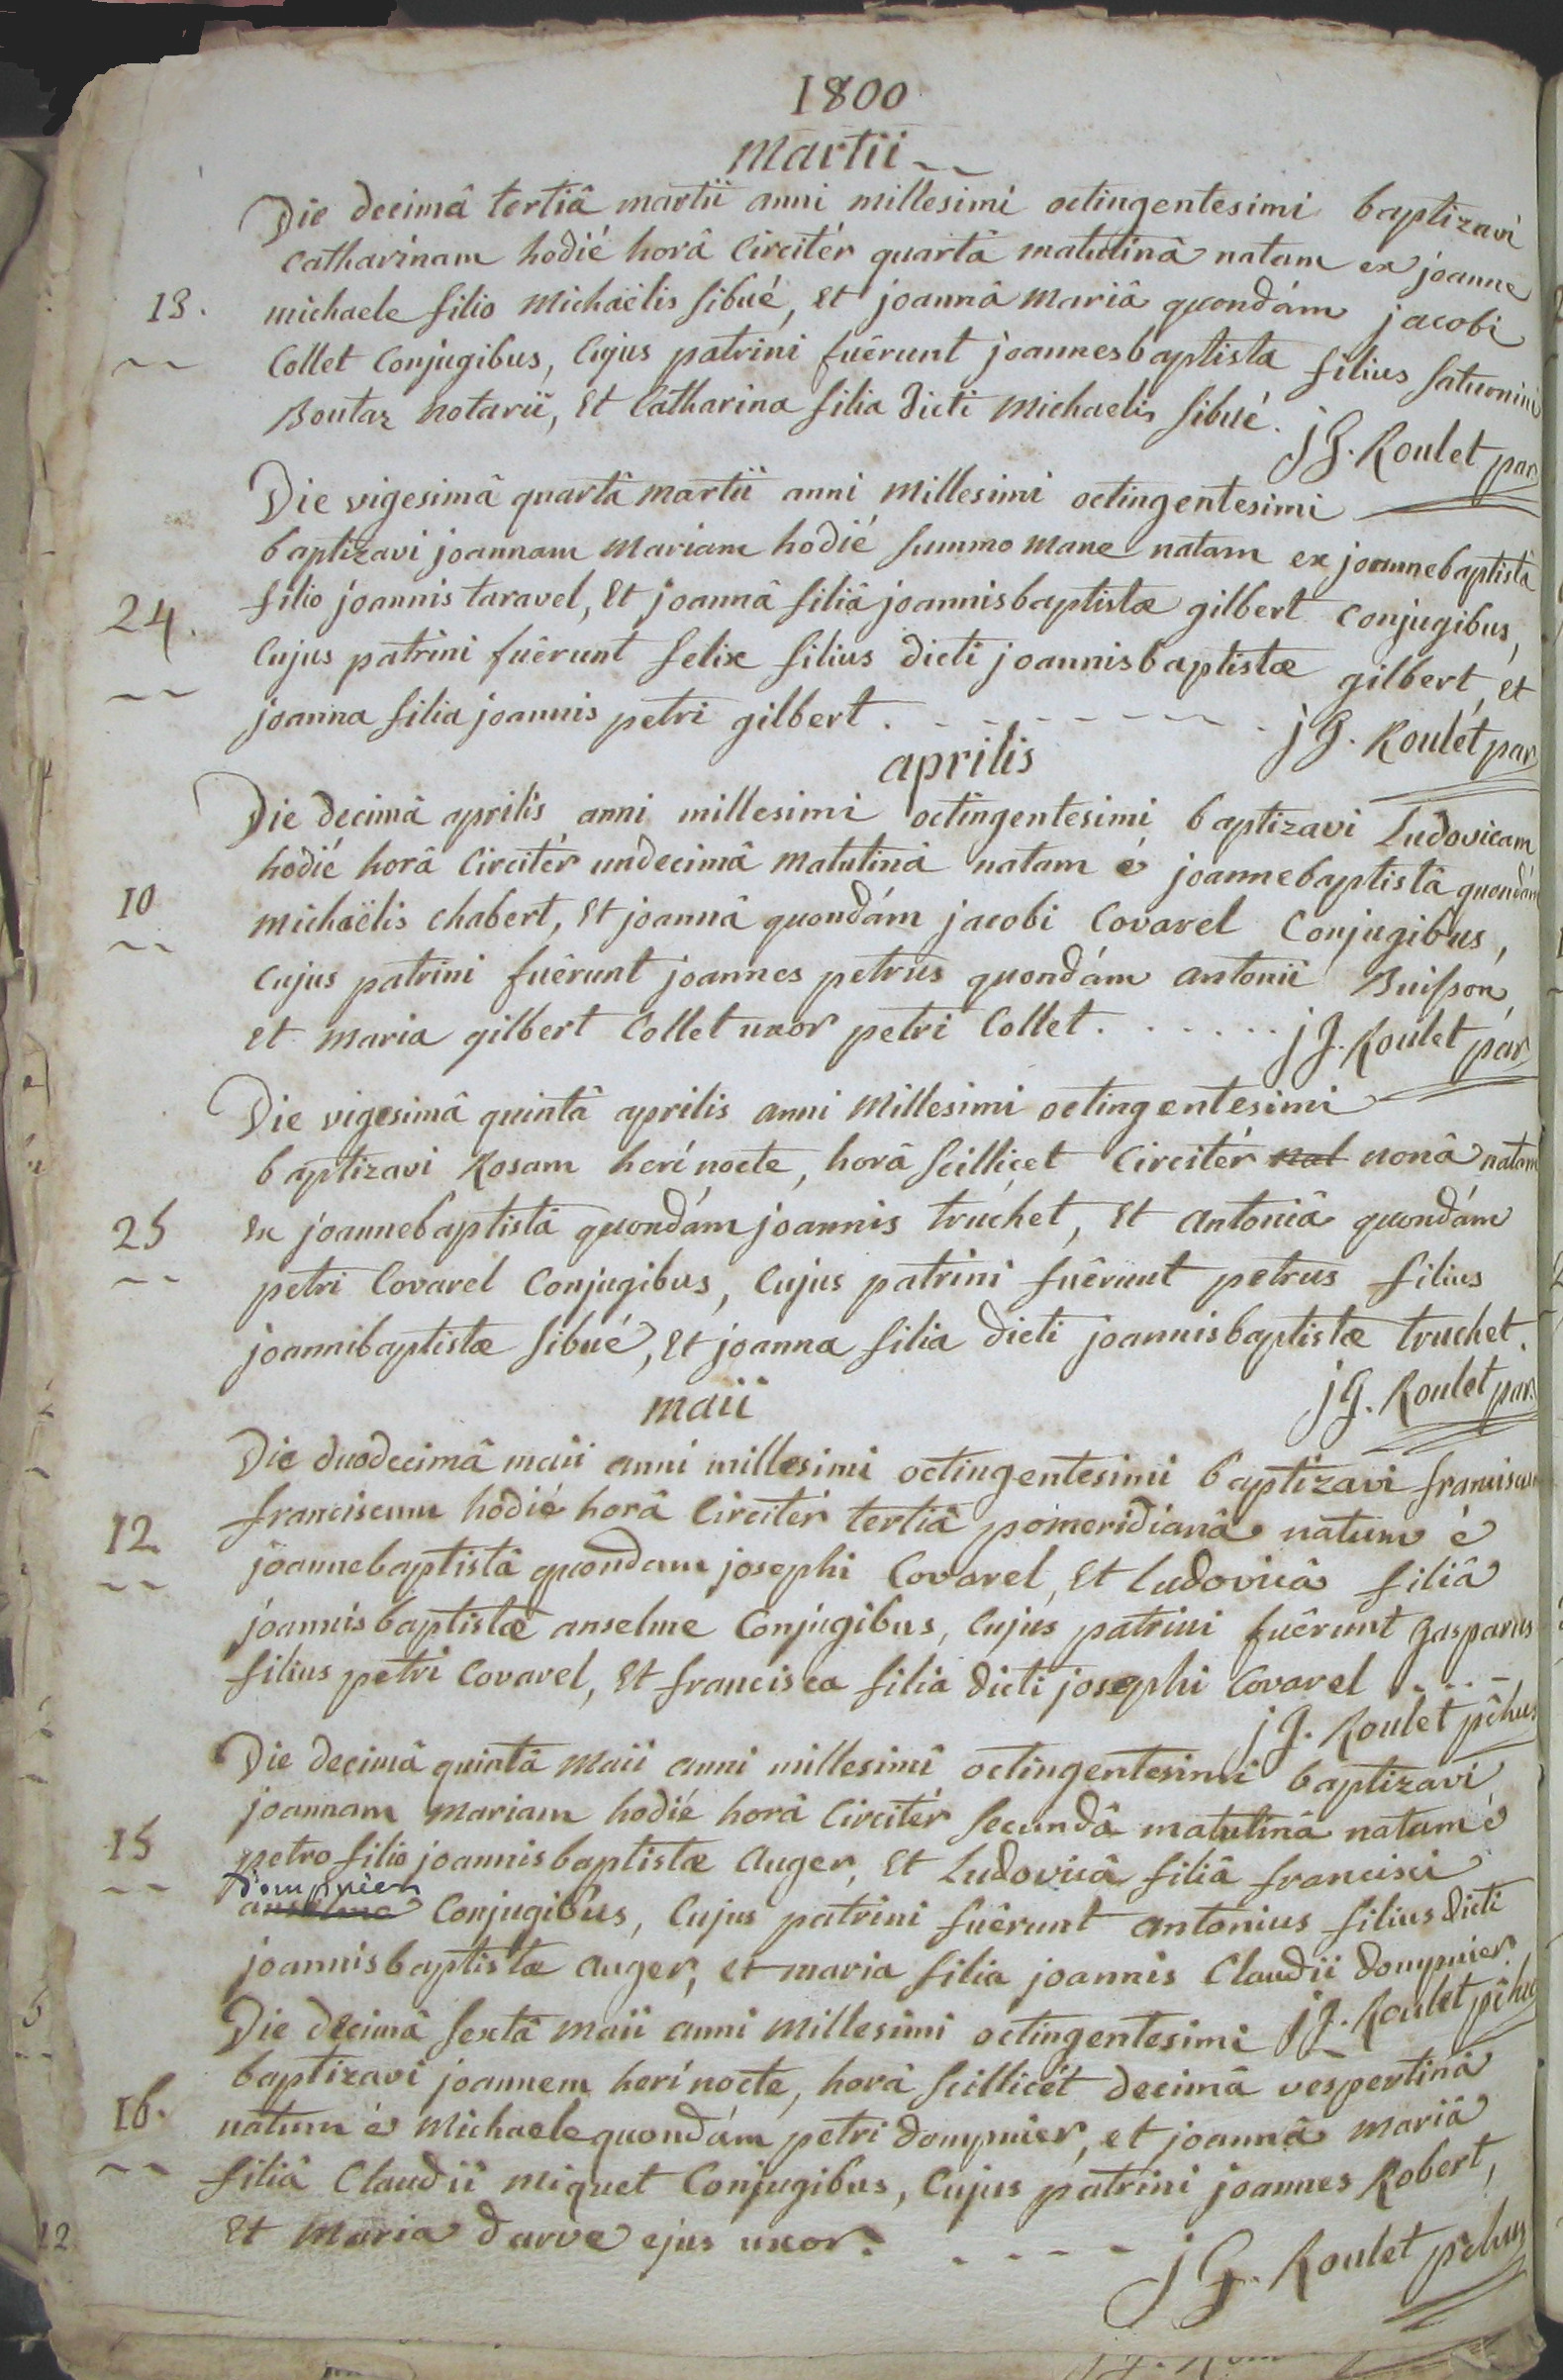 1800
Martii
Die decimâ tertiâ martii anni millesimi octingentesimi baptizavi
Catharinam hodié horâ Circitér quartâ matutinâ natam ex joanne
13. michaele filio Michaëlis Sibué, Et joannâ Mariâ quondám jacobi
Collet Conjugibus, Cujus patrini fuêrunt joannesbaptista filius Saturnini
Boutaz Notarii, Et Catharina filia dicti Michaelis Sibué.
jG. Roulet par
Die vigesimâ quartâ Martii anni Millesimi octingentesimi
baptizavi joannam Mariam hodié summo Mane natam ex joannebaptistâ
24. filio joannis taravel, Et joannâ filiâ joannisbaptistæ gilbert Conjugibus,
Cujus patrini fuêrunt felix filius dicti joannisbaptistæ gilbert, et
joanna filia joannis petri gilbert.
jG. Roulet par
aprilis
Die decimâ aprilis anni millesimi octingentesimi baptizavi Ludovicam
hodié horâ Circitér undecimâ Matutinâ natam é joannebaptistâ quondám
10 Michaëlis Chabert, Et joannâ quondám jacobi Covarel Conjugibus,
Cujus patrini fuêrunt joannes petrus quondám antonii Buisson,
et Maria gilbert Collet uxor petri Collet.
jG. Roulet par
Die vigesimâ quintâ aprilis anni Millesimi octingentesimi
baptizavi Rosam herí nocte, horâ Scillicet Circitér nat nonâ natam
25 Ex joannebaptistâ quondám joannis truchet, Et antoniâ quondám
petri Covarel Conjugibus, Cujus patrini fuêrunt petrus filius
joannibaptistæ Sibué, Et joanna filia dicti joannisbaptistæ truchet.
jG. Roulet par.
maii
Die duodecimâ maii anni millesimi octingentesimi baptizavi franciscum
12 franciscum hodié horâ Circitér tertiâ pomeridianâ natum é
joannebaptistâ quondam josephi Covarel, Et Ludovicâ filiâ
joannisbaptistæ anselme Conjugibus, Cujus patrini fuêrunt Gasparus
filius petri Covarel, Et francisca filia dicti josephi Covarel
jG. Roulet pchus
Die decimâ quintâ Maii anni millesimi octingentesimi baptizavi
joannam Mariam hodié horâ Circitér Secundâ matutinâ natam é
15 petro filio joannisbaptistæ Auger, Et Ludovicâ filiâ francisci
Dompnier
anselme Conjugibus, Cujus patrini fuêrunt antonius filius dicti
joannisbaptistæ auger, et maria filia joannis Claudii Dompnier.
jG. Roulet pchus
Die decimâ Sextâ Maii anni Millesimi octingentesimi
baptizavi joannem herí nocte, horâ Scillicét decimâ vespertinâ
16. natum é Michaele quondám petri Dompnier, et joannâ Mariâ
filiâ Claudii Miquet Conjugibus, Cujus patrini joannes Robert,
Et Maria Darve ejus uxor.
jG. Roulet pchus
12